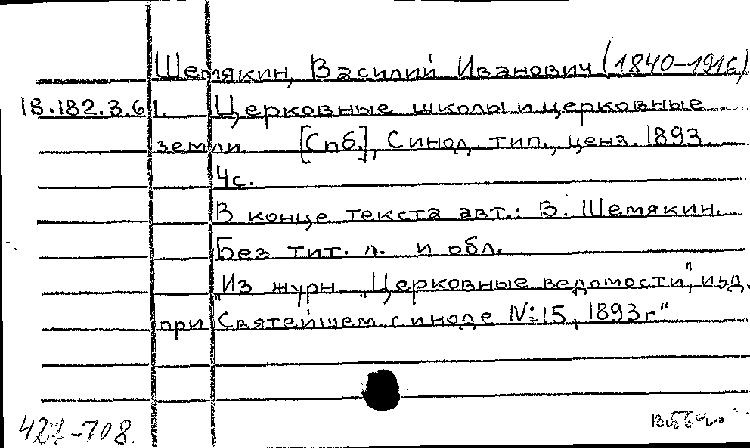 Шемякин, Василий Иванович (1840-1916)
18.182.3.61. Церковные школы и церковные
земли. [Спб.], Синод. тип., ценз. 1893.
4с.
В конце текста авт.: В. Шемякин.
Без тит. л. и обл.
"Из журн. "Церковные ведомости", изд.
при Святейшем синоде №15, 1893г."
427-708.